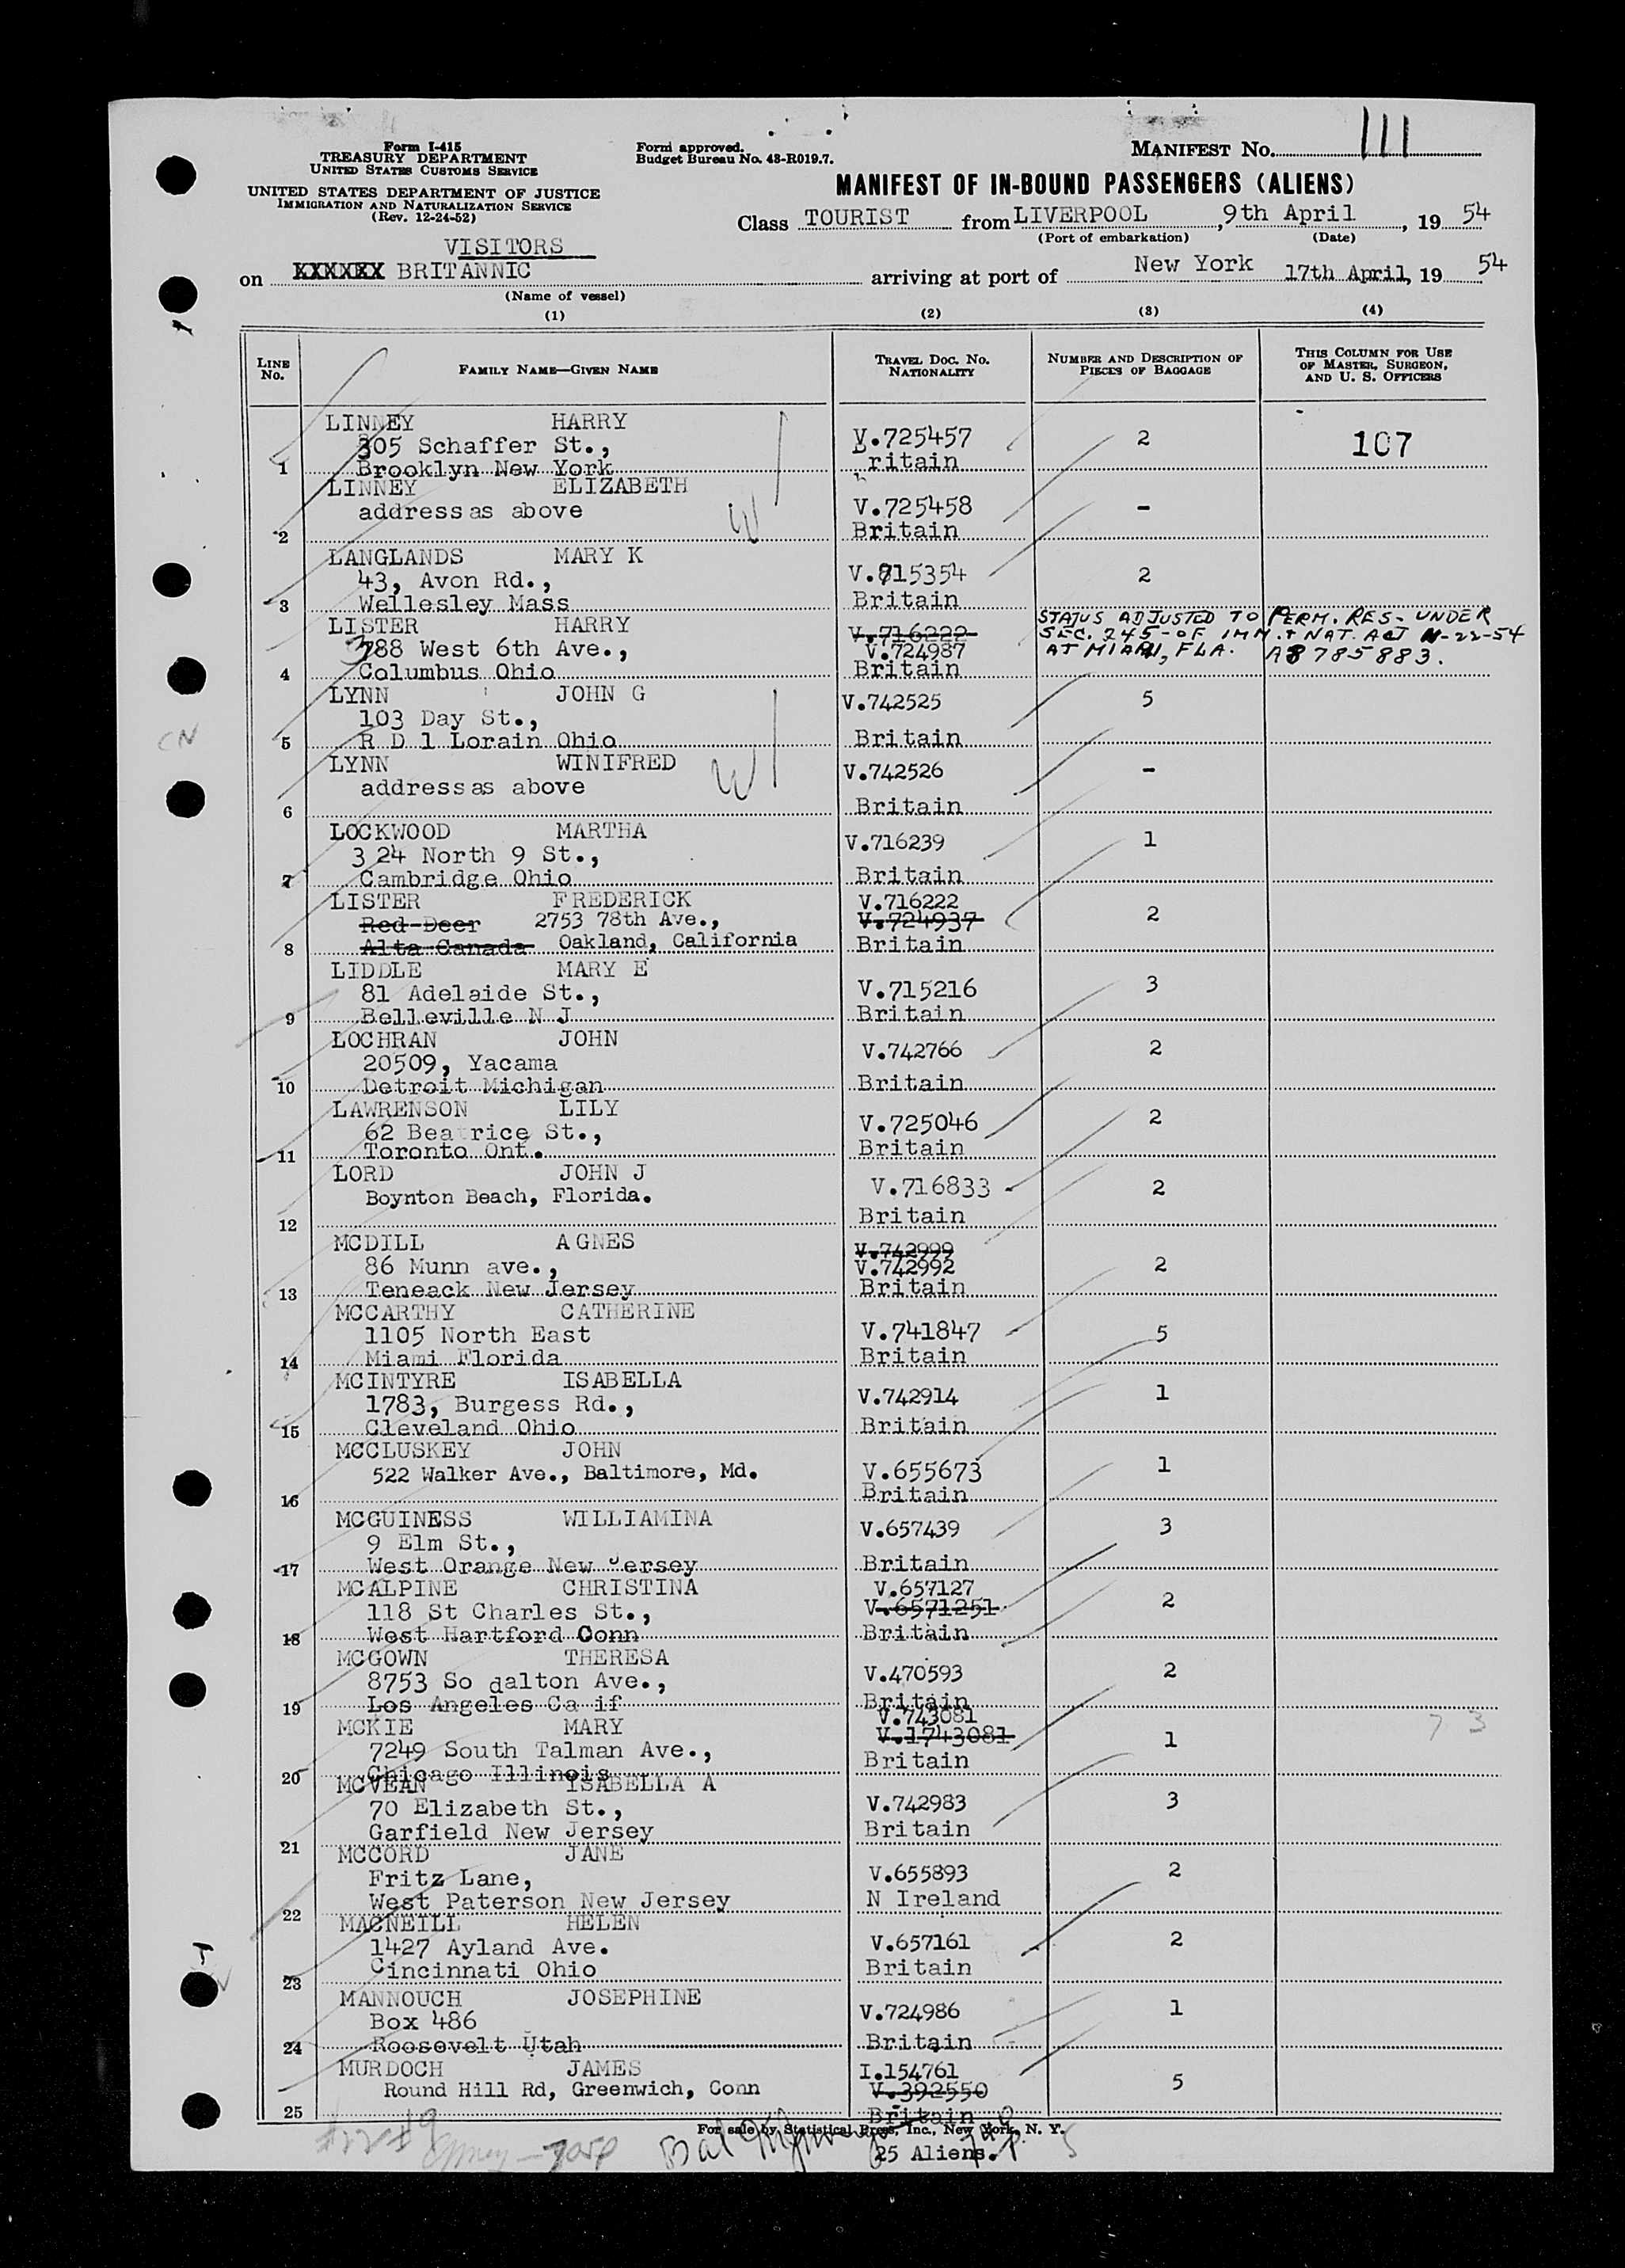 Form I-415
TREASURY DEPARTMENT
UNITED STATES CUSTOMS SERVICE
UNITED STATES DEPARTMENT OF JUSTICE
IMMIGRATION AND NATURALIZATION SERVICE
(Rev. 12-24-52)
Form approved.
Budget Bureau No. 43-R019.7.
MANIFEST No. 111
MANIFEST OF IN-BOUND PASSENGERS (ALIENS)
Class TOURIST from LIVERPOOL, 9th April, 19 54
(Port of embarkation) (Date)
VISITORS
on XXXXXX BRITANNIC arriving at port of New York 17th April, 19 54
(Name of vessel)
(1) (2) (3) (4)
LINE No. FAMILY NAME—GIVEN NAME TRAVEL DOC. NO. NATIONALITY NUMBER AND DESCRIPTION OF PIECES OF BAGGAGE THIS COLUMN FOR USE OF MASTER, SURGEON, AND U. S. OFFICERS
LINNEY HARRY
305 Schaffer St., V.725457 2 107
1 Brooklyn New York Britain
LINNEY ELIZABETH
address as above V.725458 -
2 Britain
LANGLANDS MARY K
43, Avon Rd., V.815354 2
3 Wellesley Mass Britain
LISTER HARRY V.716222 STATUS ADJUSTED TO PERM. RES. UNDER
3788 West 6th Ave., V.724987 SEC. 245- OF IMM. & NAT. ACT 11-22-54
4 Columbus Ohio Britain AT MIAMI, FLA. A8 785883.
LYNN JOHN G V.742525 5
103 Day St.,
CN
5 R D 1 Lorain Ohio Britain
LYNN WINIFRED V.742526 -
address as above W
6 Britain
LOCKWOOD MARTHA V.716239 1
3 24 North 9 St.,
7 Cambridge Ohio Britain
LISTER FREDERICK V.716222
Red Deer 2753 78th Ave., V.724937 2
8 Alta Canada Oakland, California Britain
LIDDLE MARY E
81 Adelaide St., V.715216 3
9 Belleville N J Britain
LOCHRAN JOHN V.742766 2
20509, Yacama
10 Detroit Michigan Britain
LAWRENSON LILY V.725046 2
62 Beatrice St.,
11 Toronto Ont. Britain
LORD JOHN J V.716833 2
Boynton Beach, Florida.
12 Britain
MCDILL AGNES V.742999
86 Munn ave., V.742992 2
13 Teneack New Jersey Britain
MCCARTHY CATHERINE
1105 North East V.741847 5
14 Miami Florida Britain
MCINTYRE ISABELLA V.742914 1
1783, Burgess Rd.,
15 Cleveland Ohio Britain
MCCLUSKEY JOHN
522 Walker Ave., Baltimore, Md. V.655673 1
16 Britain
MCGUINESS WILLIAMINA V.657439 3
9 Elm St.,
17 West Orange New Jersey Britain
MCALPINE CHRISTINA V.657127
118 St Charles St., V.6571251 2
18 West Hartford Conn Britain
MCGOWN THERESA V.470593 2
8753 So dalton Ave.,
19 Los Angeles Ca if Britain
MCKIE MARY V.743081
7249 South Talman Ave., V.1743081 1 7 3
20 Chicago Illinois Britain
MCVEAN ISABELLA A
70 Elizabeth St., V.742983 3
21 Garfield New Jersey Britain
MCCORD JANE
Fritz Lane, V.655893 2
22 West Paterson New Jersey N Ireland
MACNEILL HELEN
1427 Ayland Ave. V.657161 2
23 Cincinnati Ohio Britain
MANNOUCH JOSEPHINE V.724986 1
Box 486
24 Roosevelt Utah Britain
MURDOCH JAMES I.154761
Round Hill Rd, Greenwich, Conn V.392550 5
25 Britain
For sale by Statistical Press, Inc., New York, N. Y.
25 Aliens.